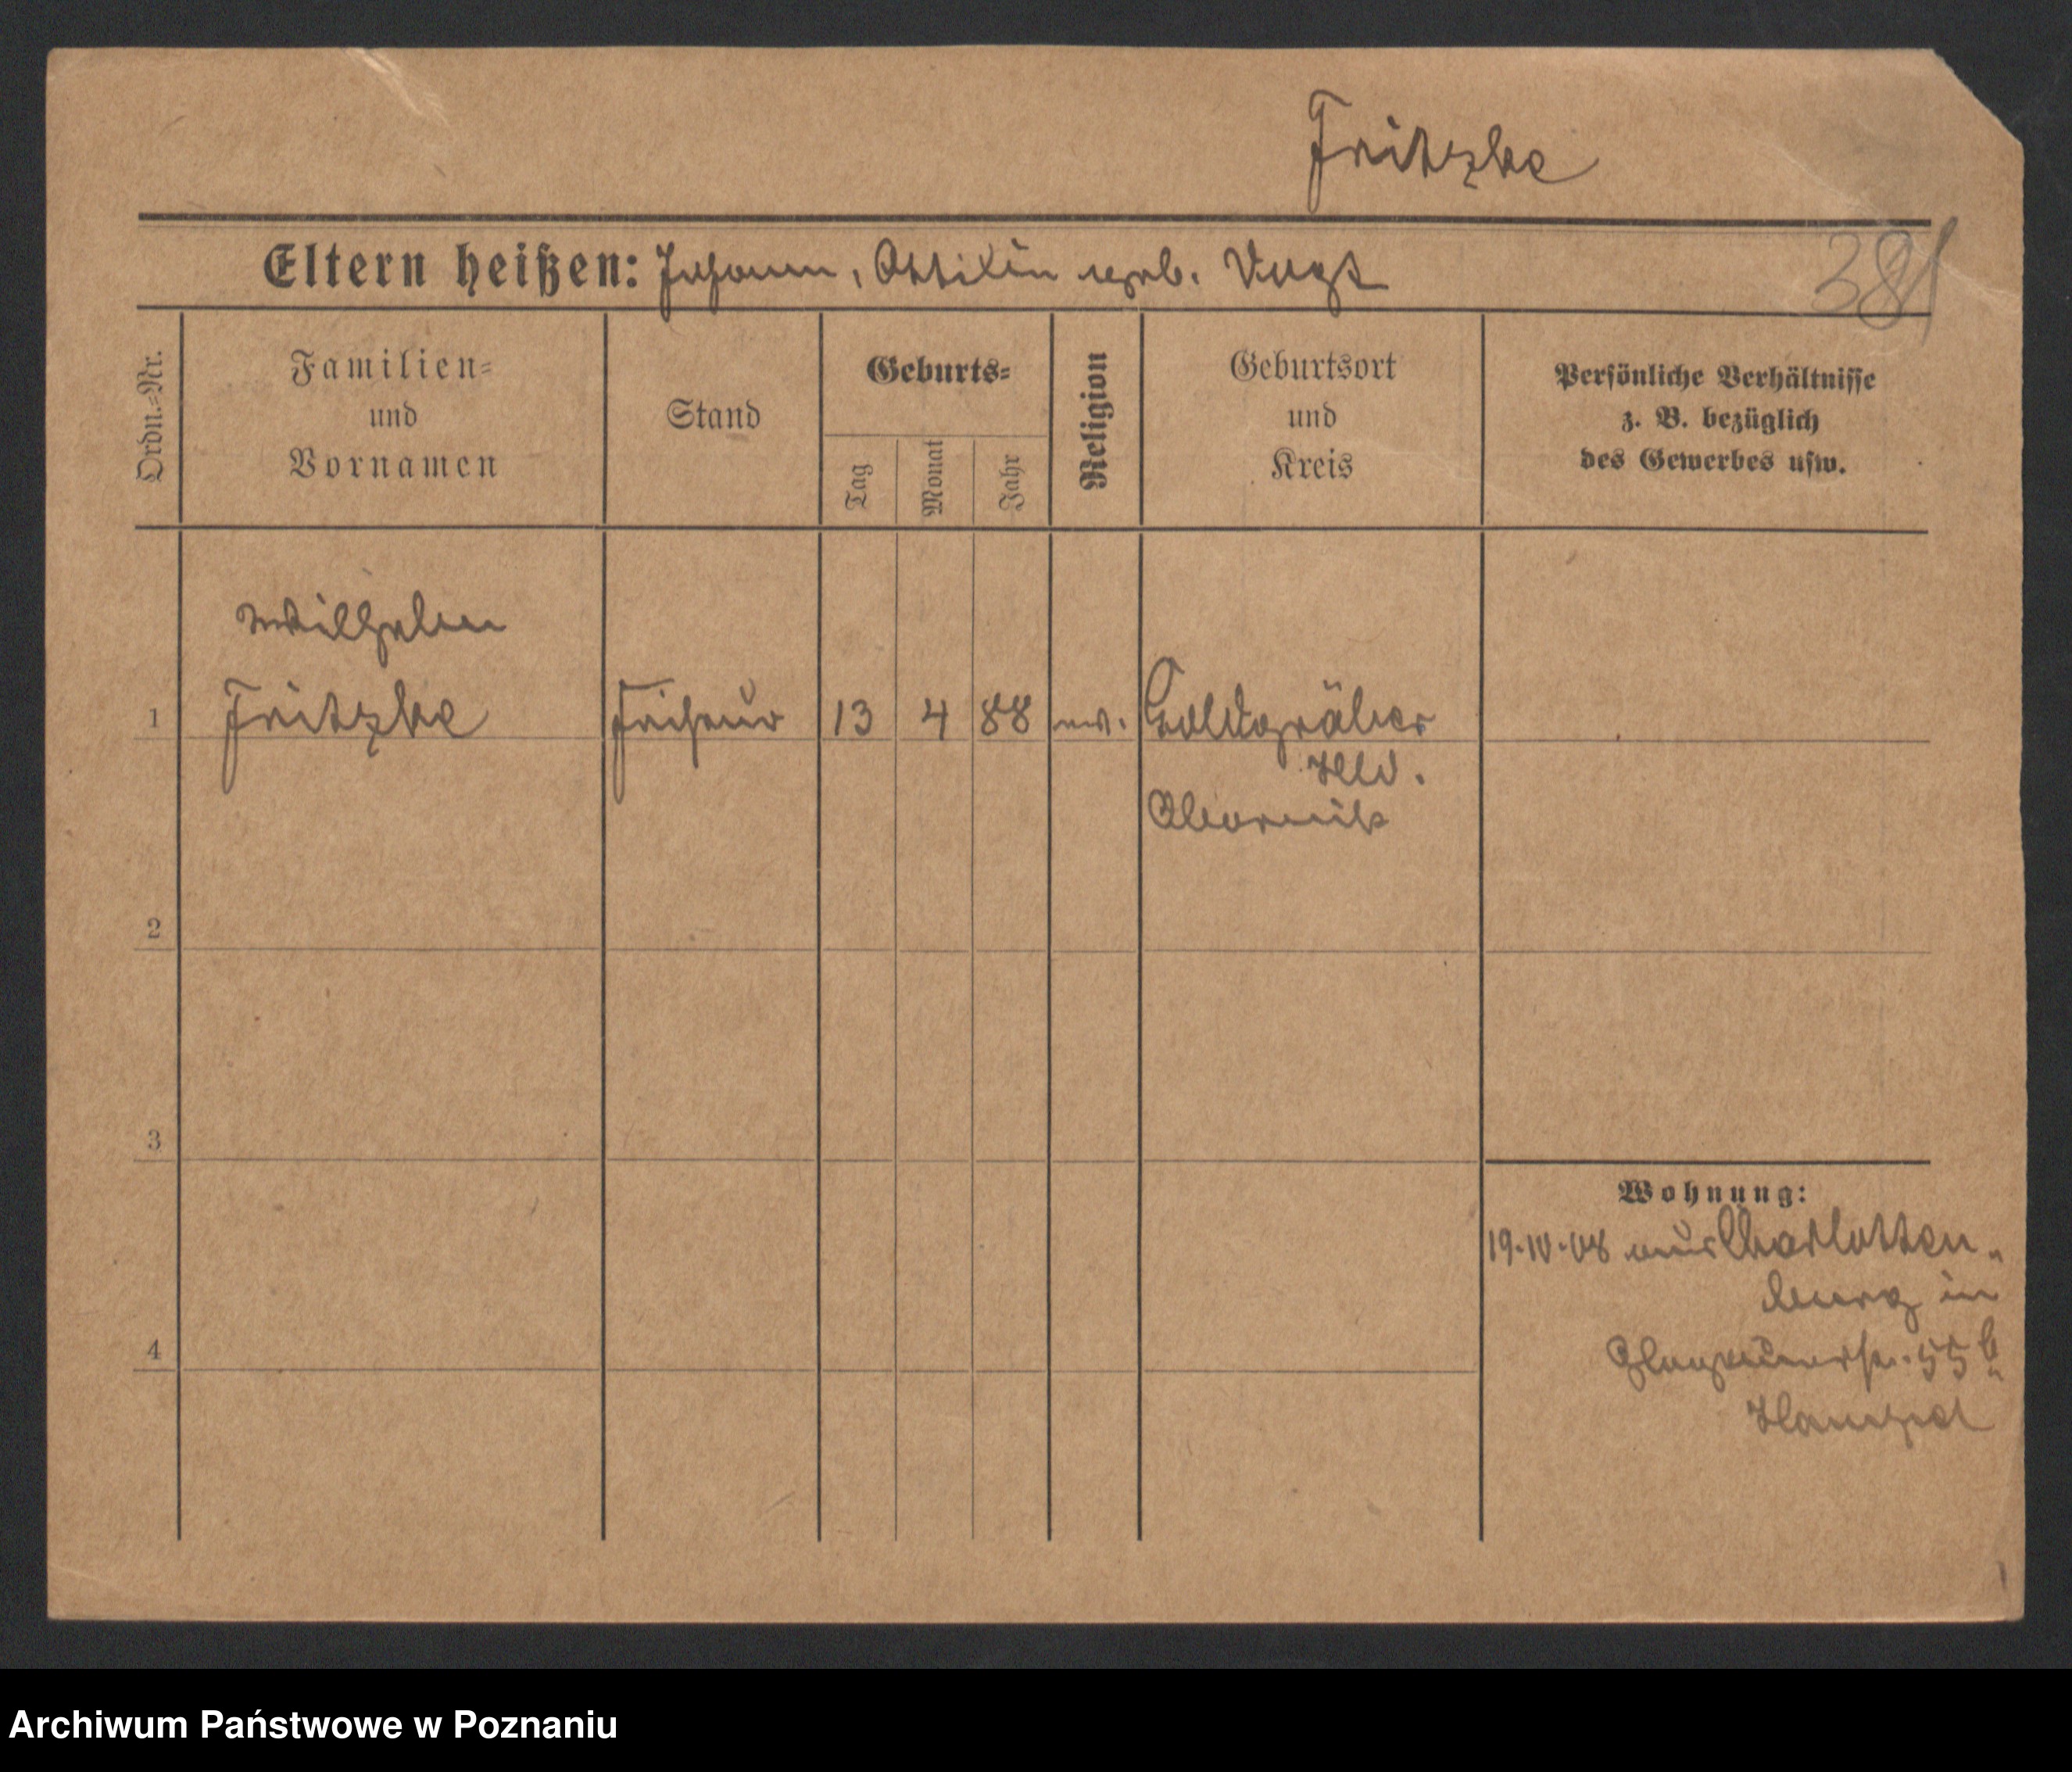 Fritzke
Eltern heißen: Johann, Ottilie geb. Vogt
381
Ordn.=Nr.
Familien=
und
Vornamen
Stand
Geburts=
Tag
Monat
Jahr
Religion
Geburtsort
und
Kreis
Persönliche Verhältnisse
z. B. bezüglich
des Gewerbes usw.
Wilhelm
1 Fritzke Friseur 13 4 88 ev. Goldgräber
Hld.
Obornik
2
3
4
Wohnung:
19.10.08 aus Charlotten-
burg in
Glogauerstr. 55